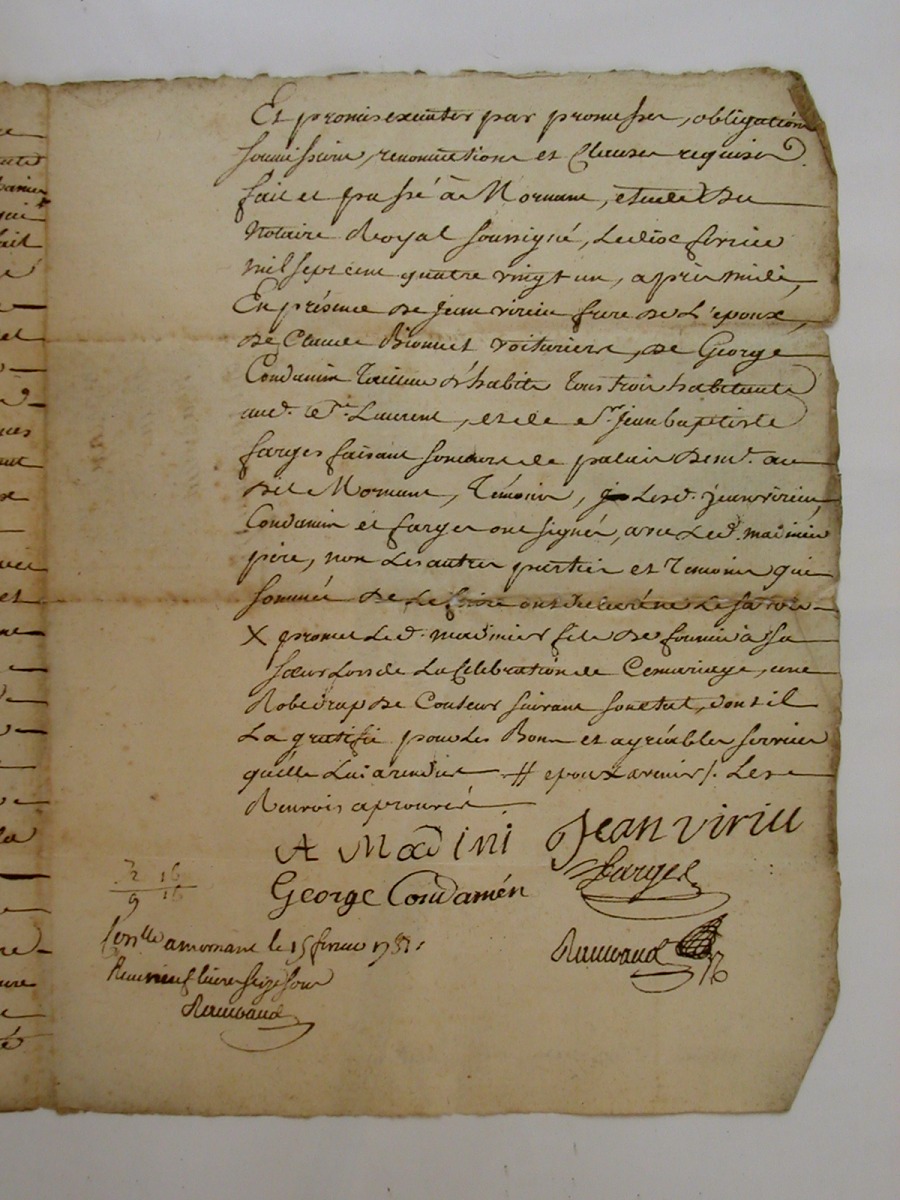 Et promis executer par promesses, obligations
soumissions, renonciations et Clauses requises
fait et passé à Mornant, etude Du
Notaire Royal soussigné, Le dix fevrier
mil sept cent quatre vingt un, apres midi,
En présence de jean virieu frere de L'epoux,
de Claude voituriers, de George
Condamin Tailleur d'habits Tous trois habitants
aud. St. Laurent, et de Sr. jean baptiste
farges faisant de palais demt. au
dit Mornant, Témoins, Lesd. jean virieu,
Condamin et farges ont signés, avec Led. madinier
pere, non Les autres parties et Temoins qui
sommés de Le faire ont declaré ne Le savoir
X promet Led. madinier fils de fournir à sa
sœur Lors de La Celebration de Ce mariage, une
Robe drap de Couleur suivant son etat, dont il
La gratifie pour Les Bons et agréables services
quelle Lui a rendus # epoux avenir /. Les
Renvois aprouvés
A Madini Jean viriu
George Condamén farges
3 16
9 16
Conllé a mornant le 15 fevrier 1781
Recu neuf livres seize sous